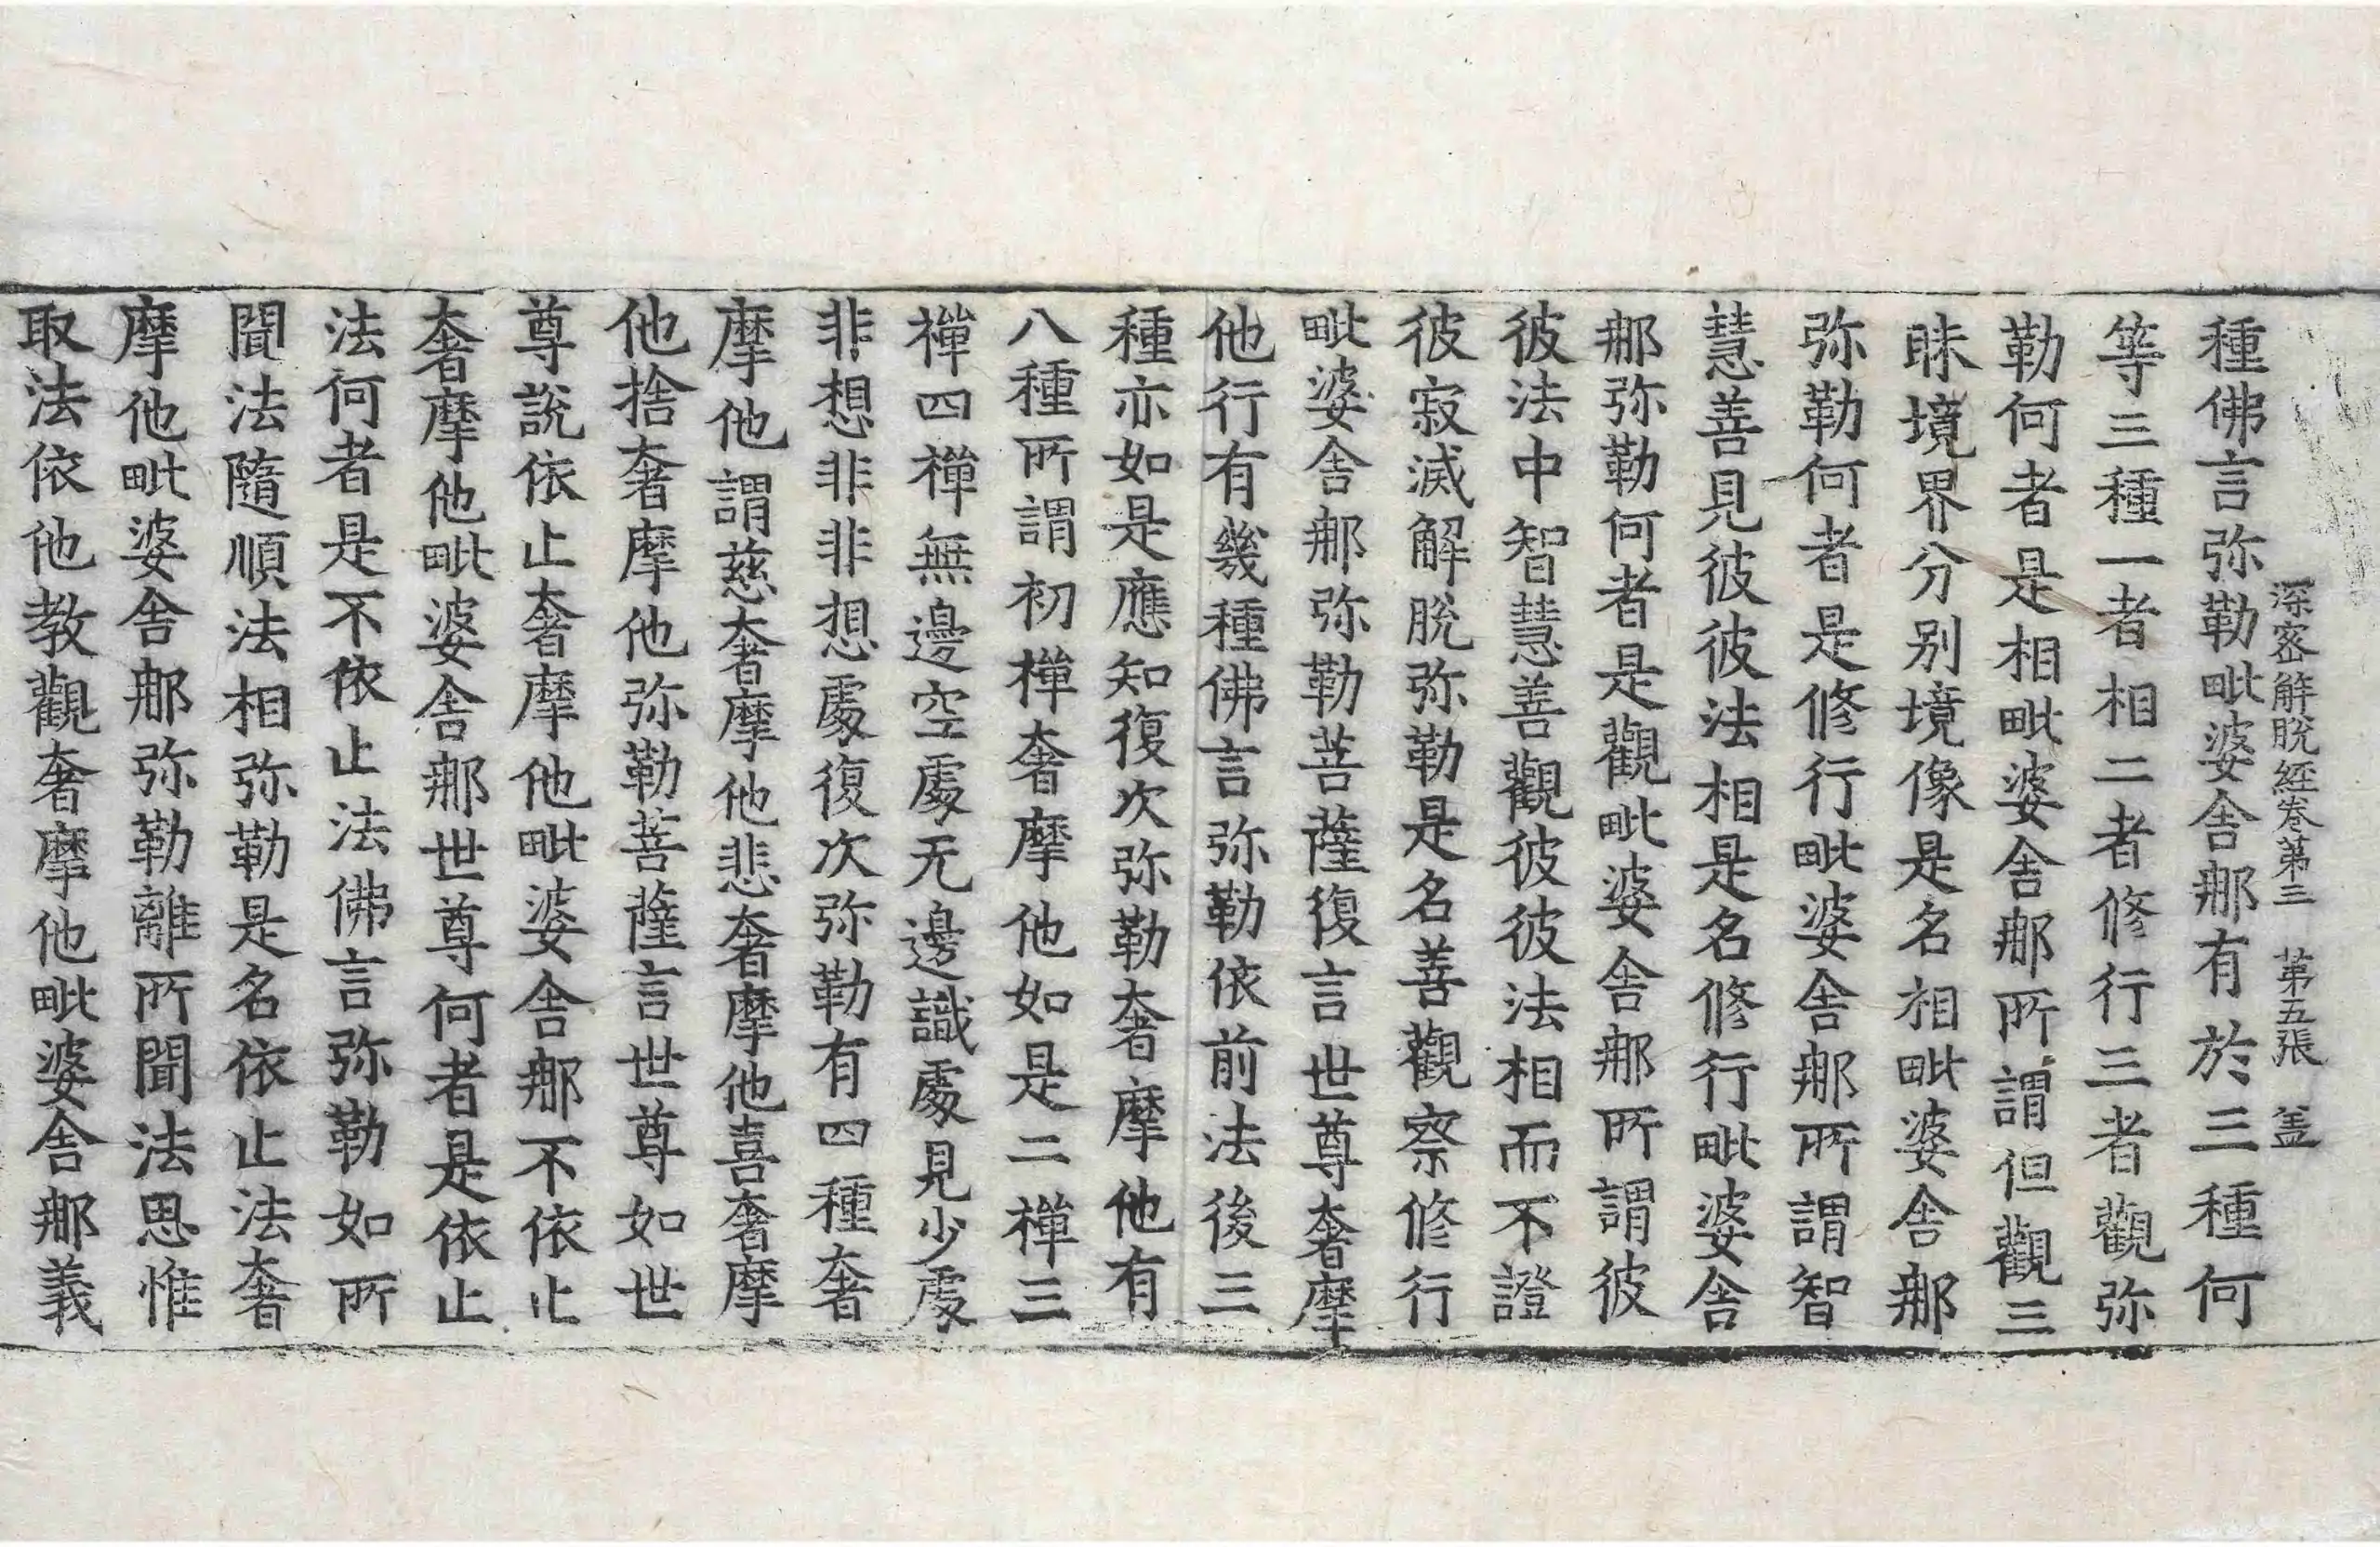 深密解脫經卷第三　第五張　盖
種佛言弥勒毗婆舍那有於三種何
等三種一者相二者修行三者觀弥
勒何者是相毗婆舍那所謂但觀三
昧境界分别境像是名相毗婆舍那
弥勒何者是修行毗婆舍那所謂智
慧善見彼彼法相是名修行毗婆舍
那弥勒何者是觀毗婆舍那所謂彼
彼法中智慧善觀彼彼法相而不證
彼寂滅解脫弥勒是名善觀察修行
毗婆舍那弥勒菩薩復言世尊奢摩
他行有幾種佛言弥勒依前法後三
種亦如是應知復次弥勒奢摩他有
八種所謂初禪奢摩他如是二禪三
禪四禪無邊空處无邊識處見少處
非想非非想處復次弥勒有四種奢
摩他謂慈奢摩他悲奢摩他喜奢摩
他捨奢摩他弥勒菩薩言世尊如世
尊說依止奢摩他毗婆舍那不依止
奢摩他毗婆舍那世尊何者是依止
法何者是不依止法佛言弥勒如所
聞法隨順法相弥勒是名依止法奢
摩他毗婆舍那弥勒離所聞法思惟
取法依他教觀奢摩他毗婆舍那義